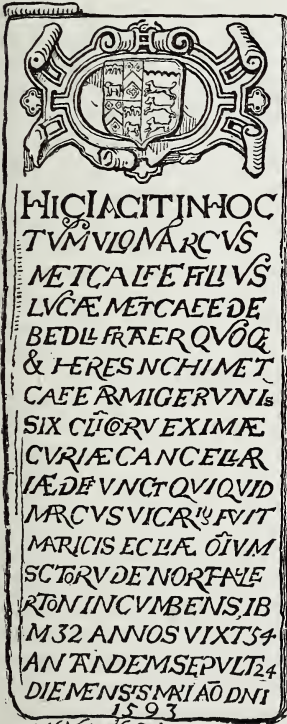 HIC IACIT IN HOC
TVMVLO MARCVS
METCALFE FILIVS
LVCÆ METCAFE DE
BEDLL FRATER QVOQE
& HERES NCHI MET
CAFE ARMIGER VNIs
SIX CLICORV EXIMÆ
CVRIÆ CANCELLAR
IÆ DEFVNCT QVI QVID
MARCVS VICARIVS FVIT
MATRICIS ECLIÆ OIVM
SCTORV DE NORTHALE
RTON INCVMBENS IB
M 32 ANNOS VIXT 54
AN TANDEM SEPVLT 24
DIE MENSIS MAI AO DNI
1593